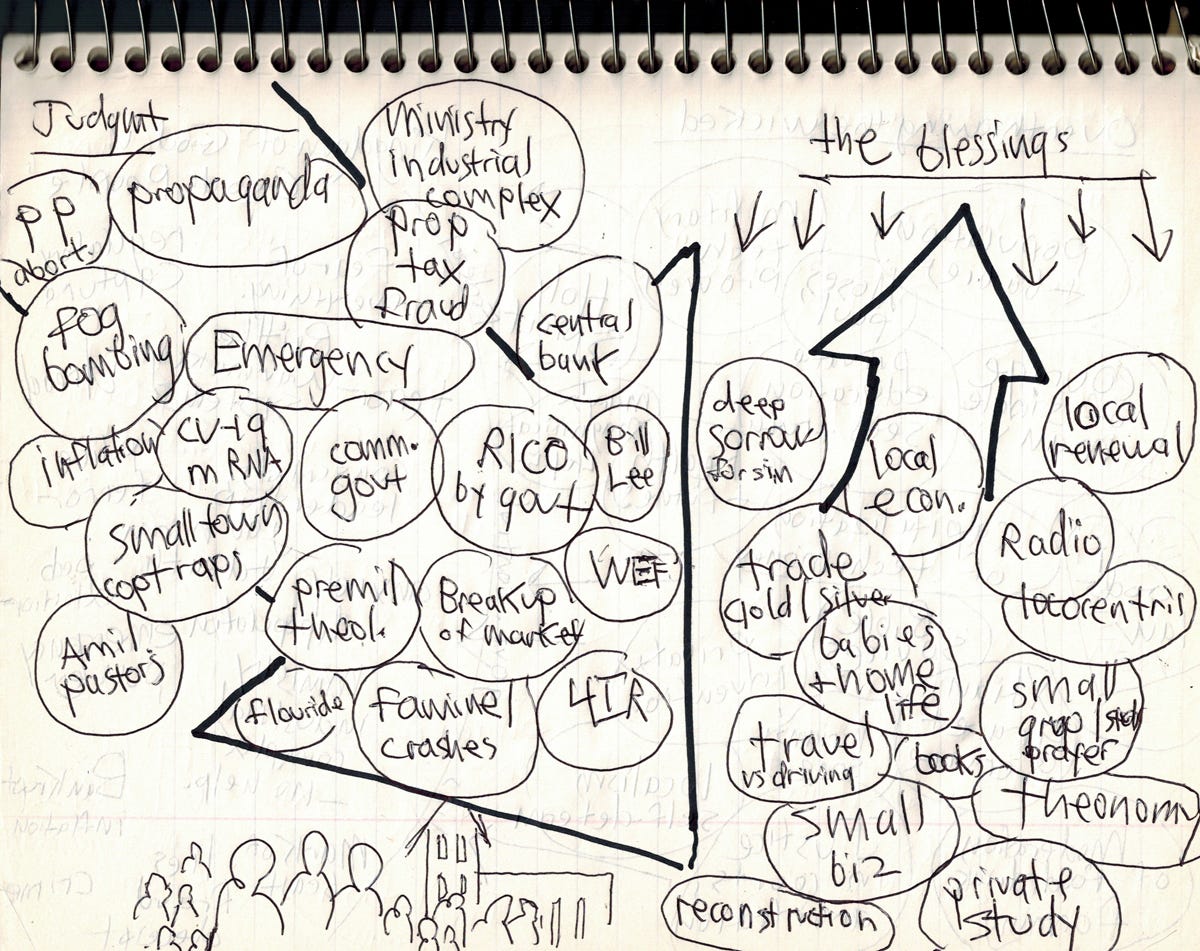 Judgmt
propaganda
ministry
industrial
complex
PP
abort.
prop
tax
fraud
fog
bombing
Emergency
central
bank
inflation
CV-19
mRNA
comm.
govt
RICO
by govt
Bill
Lee
small town
cop traps
premil
theol.
Breakup
of market
WEF
Amil
pastors
flouride
famine/
crashes
4IR
the blessings
deep
sorrow
for sin
local
econ.
local
renewal
trade
gold/silver
Radio
lococentris
babies
+ home
life
small
grup/study
prayer
travel
vs driving
books
theonomy
small
biz
reconstruction
private
study